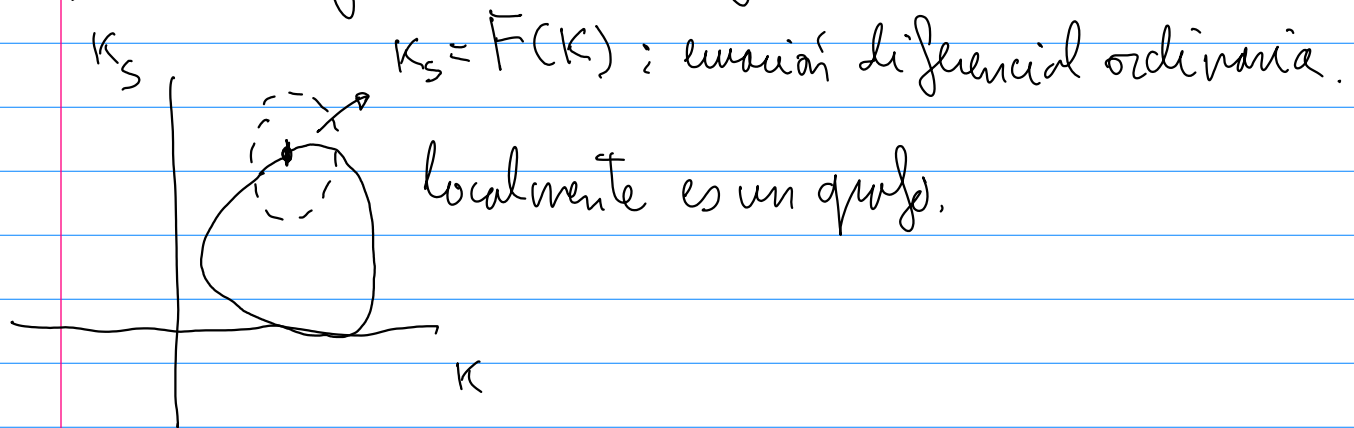 K_S
K_S = F(K) : ecuación diferencial ordinaria.
localmente es un grafo.
K